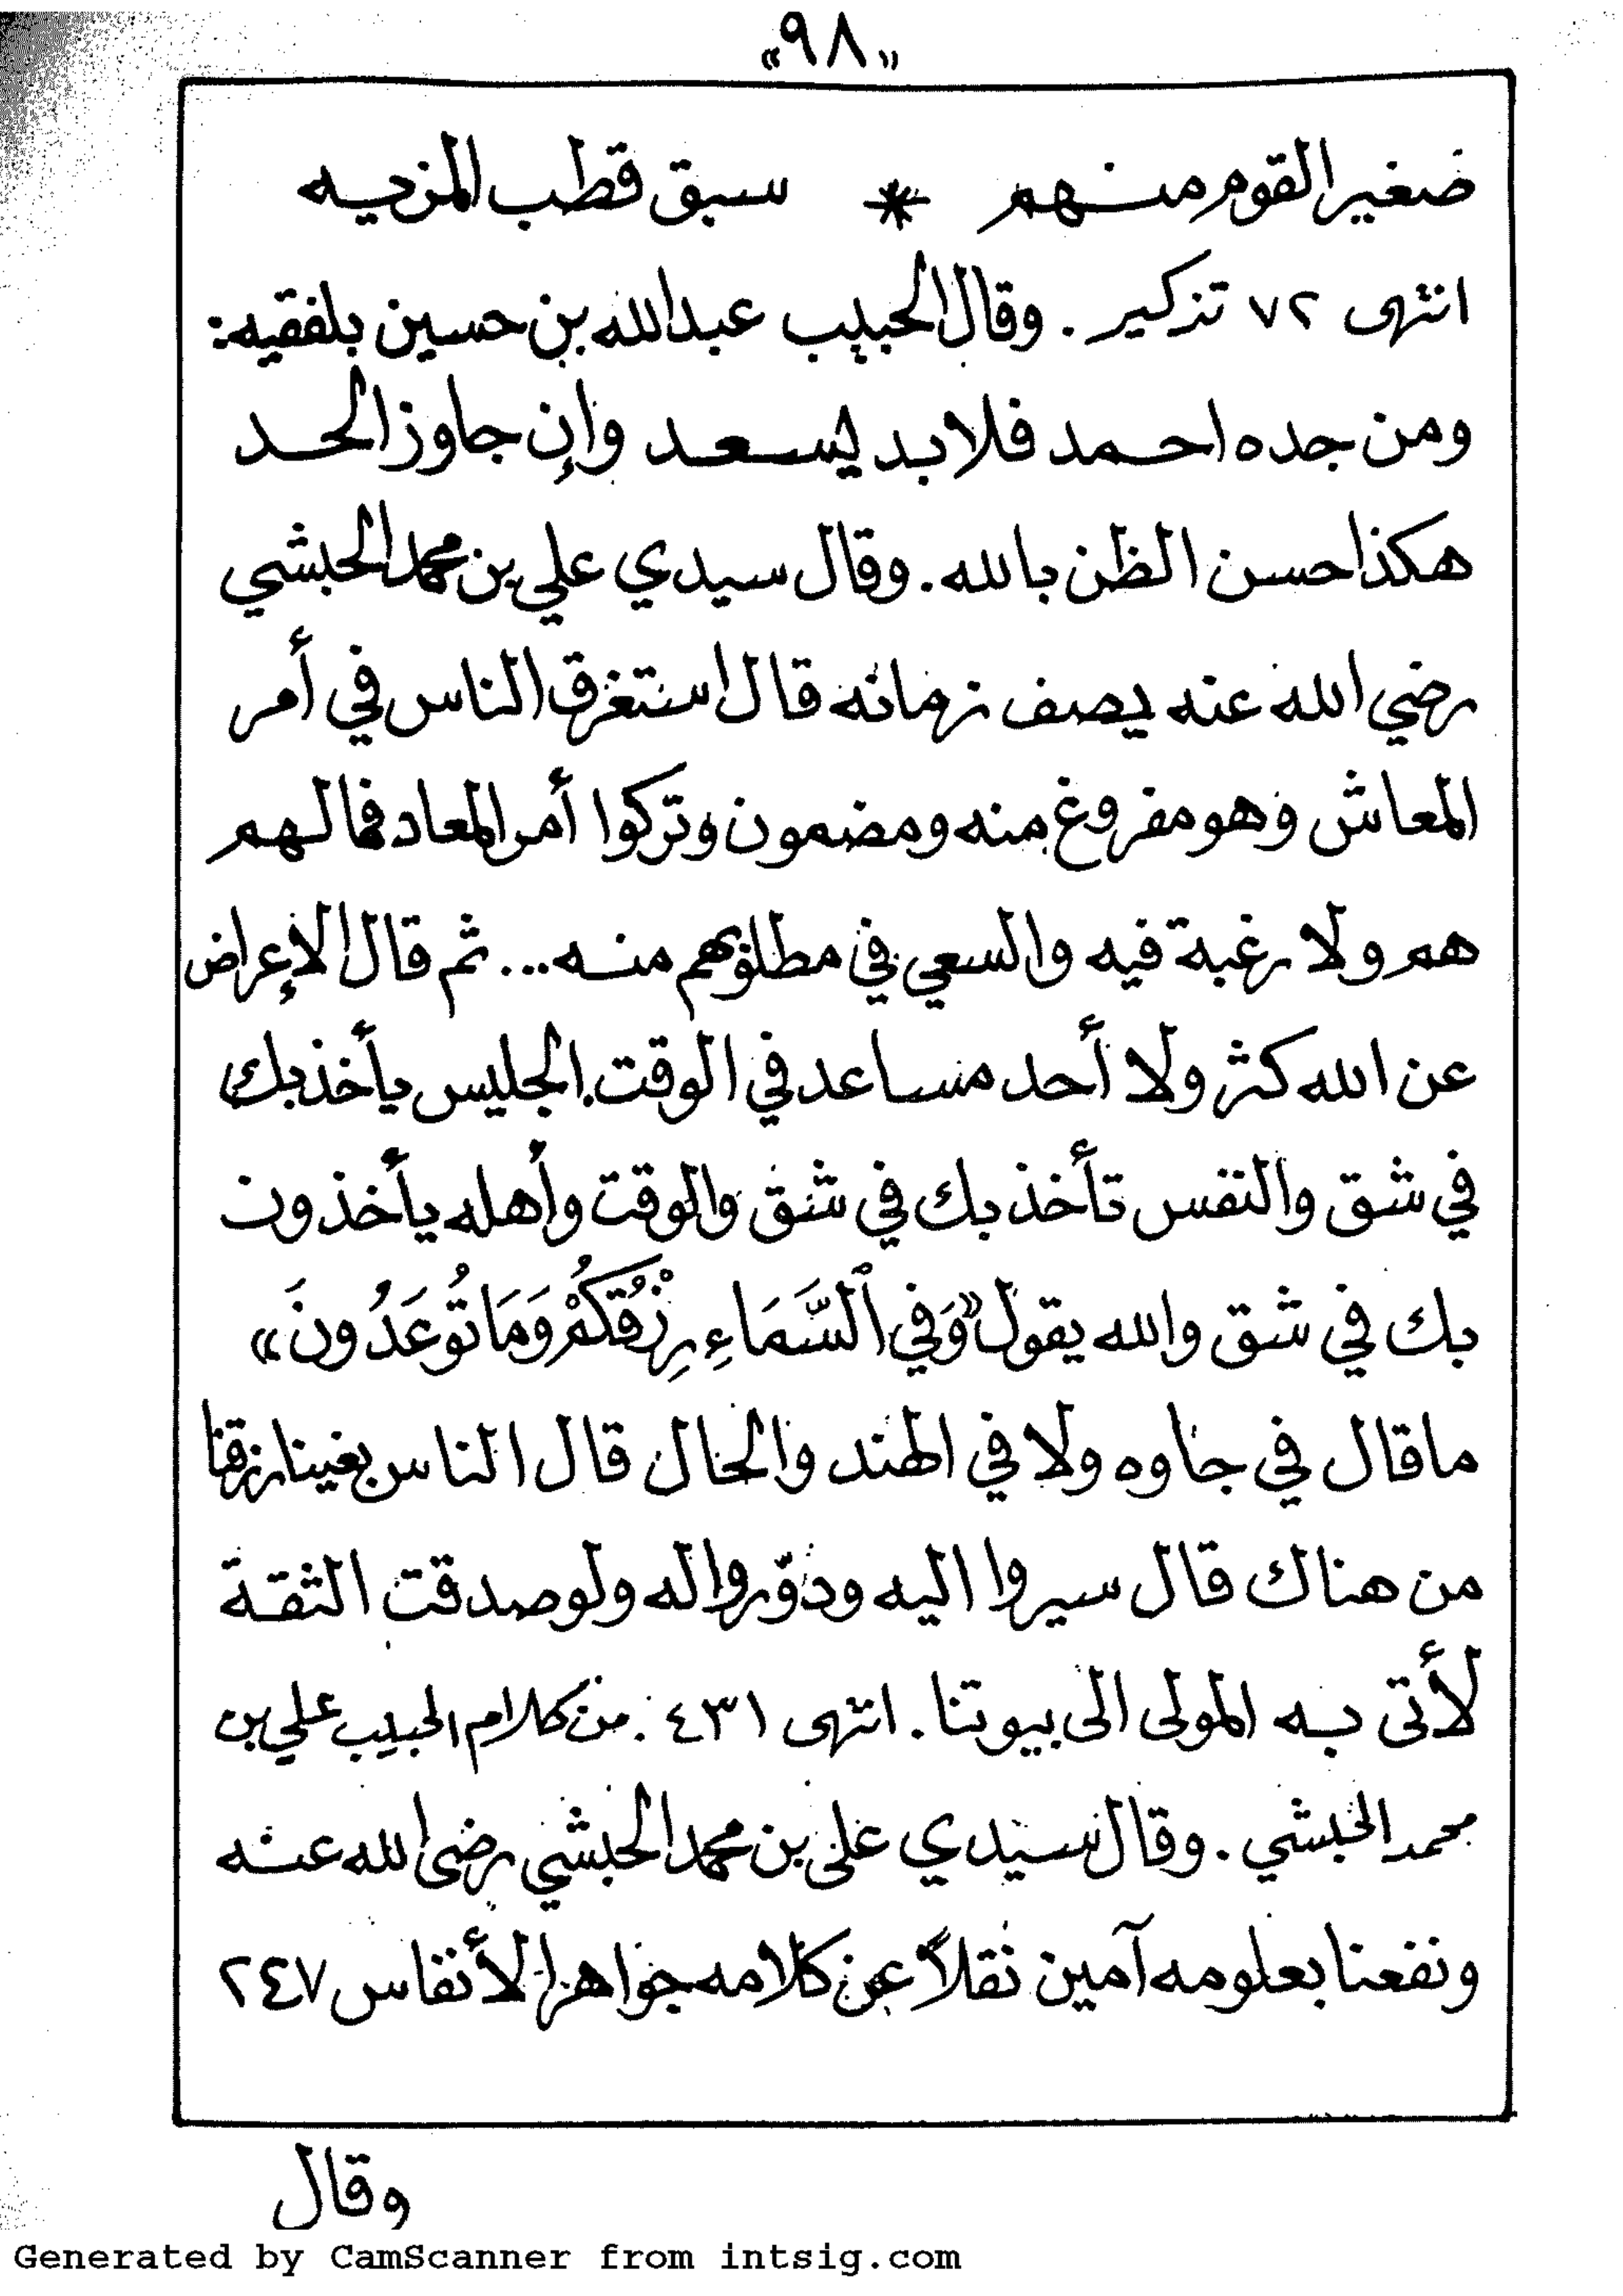 «٩٨»
ضغير القوم منهم * سبق قطب المزيه
انتهى ٧٢ تذكير . وقال الحبيب عبدالله بن حسين بلفقيه :
ومن جده احمد فلابد يسعد وإن جاوز الحد
هكذا حسن الظن بالله . وقال سيدي علي بن محمد الحبشي
رضي الله عنه يصف زمانه قال استغرق الناس في أمر
المعاش وهو مفروغ منه ومضمون وتركوا أمر المعاد فما لهم
هم ولا رغبة فيه والسعي في مطلوبهم منه ... ثم قال الإعراض
عن الله كثر ولا أحد مساعد في الوقت. الجليس يأخذ بك
في شق والنفس تأخذ بك في شق والوقت وأهله يأخذون
بك في شق والله يقول «وَفِي ٱلسَّمَاءِ رِزْقُكُمْ وَمَا تُوعَدُونَ»
ماقال في جاوه ولا في الهند والحال قال الناس بغينا رزقنا
من هناك قال سيروا اليه ودوّروا له ولو صدقت الثقة
لأتى به المولى الى بيوتنا . انتهى ٤٣١ . من كلام الحبيب علي بن
محمد الحبشي . وقال سيدي علي بن محمد الحبشي رضى الله عنه
ونفعنا بعلومه آمين نقلاً عن كلامه جواهر الأنفاس ٢٤٧
وقال
Generated by CamScanner from intsig.com